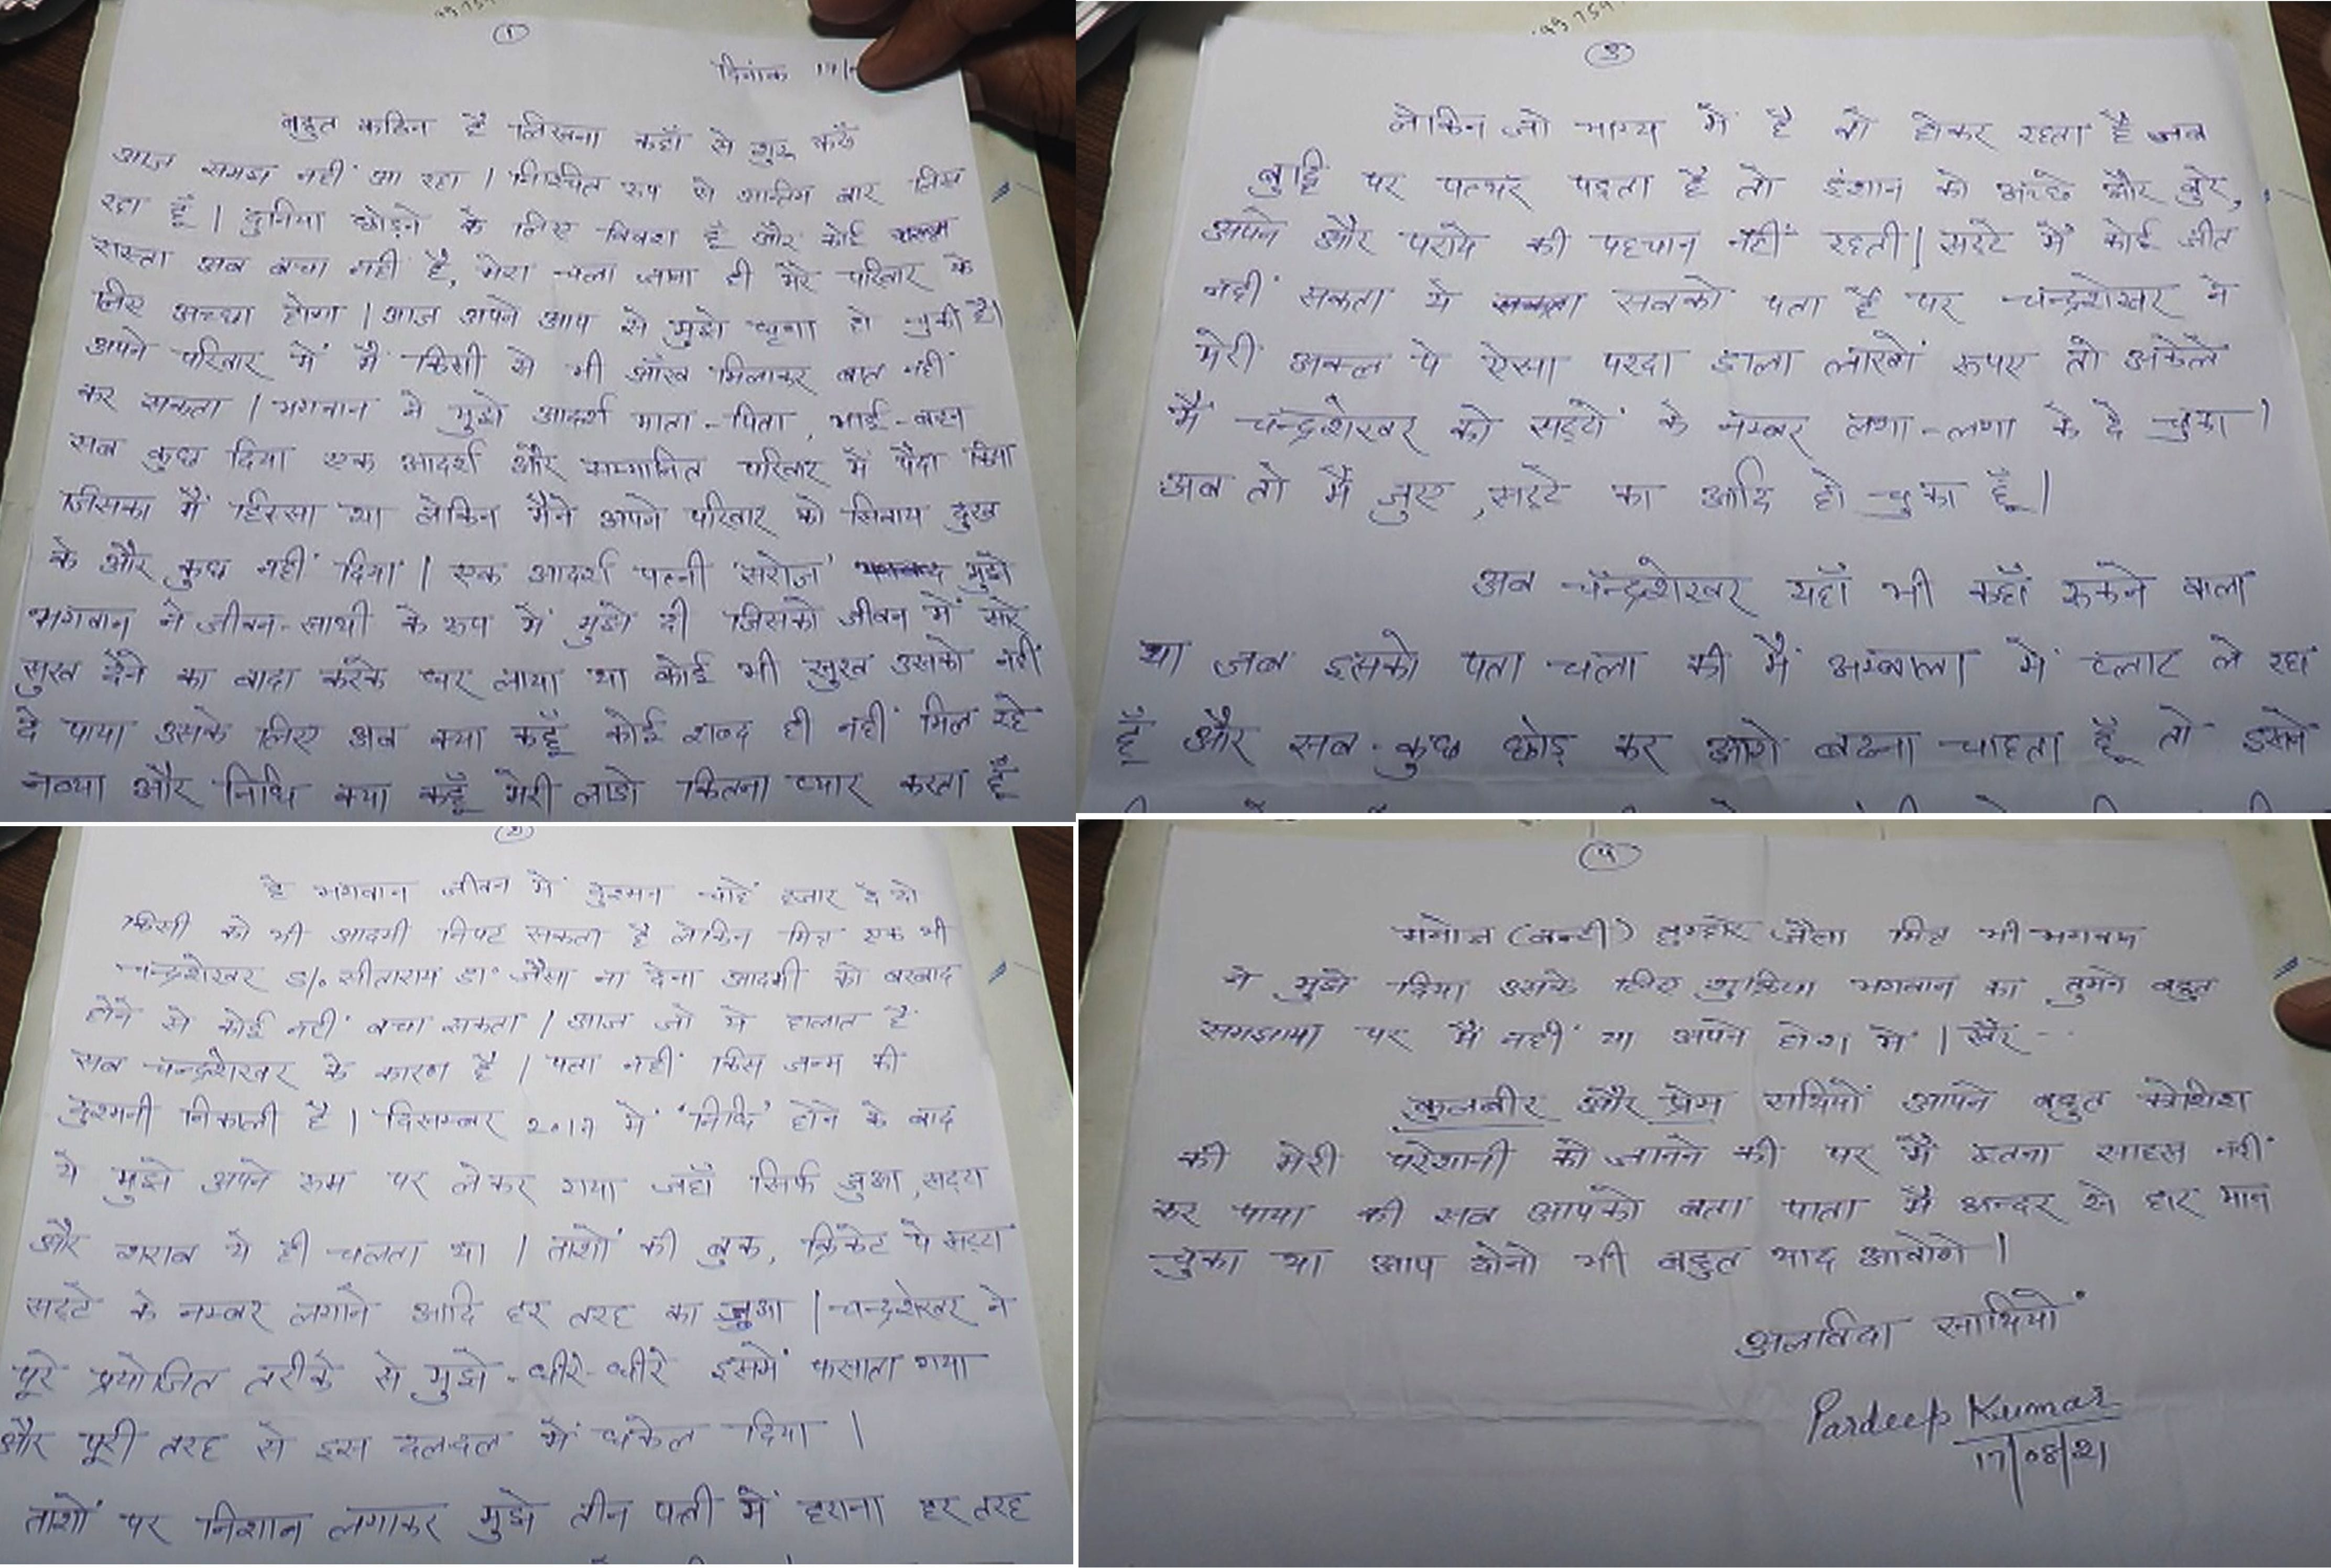 ①
दिनांक 17/
बहुत कठिन है लिखना कहाँ से शुरू करूँ
आज समझ नहीं आ रहा । निश्चित रूप से अन्तिम बार लिख
रहा हूँ । दुनिया छोड़ने के लिए विवश हूँ और कोई
रास्ता अब बचा नहीं है, मेरा चला जाना ही मेरे परिवार के
लिए अच्छा होगा । आज अपने आप से मुझे घृणा हो चुकी है।
अपने परिवार में मैं किसी से भी आँख मिलाकर बात नहीं
कर सकता । भगवान ने मुझे आदर्श माता-पिता, भाई-बहन
सब कुछ दिया एक आदर्श और सम्मानित परिवार में पैदा किया
जिसका मैं हिस्सा था लेकिन मैंने अपने परिवार को सिवाय दुख
के और कुछ नहीं दिया । एक आदर्श पत्नी 'सरोज' मुझे
भगवान ने जीवन-साथी के रूप में मुझे दी जिसको जीवन में सारे
सुख देने का वादा करके घर लाया था कोई भी सुख उसको नहीं
दे पाया उसके लिए अब क्या कहूँ कोई शब्द ही नहीं मिल रहे
नव्या और निधि क्या कहूँ मेरी लाडो कितना प्यार करता हूँ
③
लेकिन जो भाग्य में है वो होकर रहता है जब
बुद्धि पर पत्थर पड़ता है तो इंशान को अच्छे और बुरे,
अपने और पराये की पहचान नहीं रहती । सट्टे में कोई जीत
नहीं सकता ये सबको पता है पर चन्द्रशेखर ने
मेरी अक्ल पे ऐसा परदा डाला लाखों रूपए तो अकेले
मैं चन्द्रशेखर को सट्टो के नम्बर लगा-लगा के दे चुका ।
अब तो मैं जुए, सट्टे का आदि हो चुका हूँ ।
अब चन्द्रशेखर यहाँ भी कहाँ रूकने वाला
था जब इसको पता चला की मैं अम्बाला में प्लाट ले रहा
हूँ और सब-कुछ छोड़ कर आगे बढना चाहता हूँ तो इसने
②
हे भगवान जीवन में दुश्मन चाहे हजार दे दो
किसी को भी आदमी निपट सकता है लेकिन मित्र एक भी
चन्द्रशेखर S/o सीताराम डा॰ जैसा ना देना आदमी को बरबाद
होने से कोई नहीं बचा सकता । आज जो मे हालात है
सब चन्द्रशेखर के कारण है । पता नहीं किस जन्म की
दुश्मनी निकाली है । दिसम्बर 2017 में 'निधि' होने के बाद
ये मुझे अपने रूम पर लेकर गया जहाँ सिर्फ जुआ, सट्टा
और शराब ये ही चलता था । ताशों की बुक, क्रिकेट पे सट्टा
सट्टे के नम्बर लगाने आदि हर तरह का जुआ । चन्द्रशेखर ने
पूरे प्रयोजित तरीके से मुझे धीरे-धीरे इसमें फसाता गया
और पूरी तरह से इस दलदल में धकेल दिया ।
ताशों पर निशान लगाकर मुझे तीन पत्ती में हराना हर तरह
④
मनोज (बन्टी) तुम्हारे जैसा मित्र भी भगवान
ने मुझे दिया उसके लिए शुक्रिया भगवान का तुमने बहुत
समझाया पर मैं नहीं था अपने होश में । खैर --
कुलबीर और प्रेम साथियों आपने बहुत कोशिश
की मेरी परेशानी को जानने की पर मैं इतना साहस नहीं
कर पाया की सब आपको बता पाता मैं अन्दर से हार मान
चुका था आप दोनो भी बहुत याद आवोगे ।
अलविदा साथियों
Pardeep Kumar
17/08/21